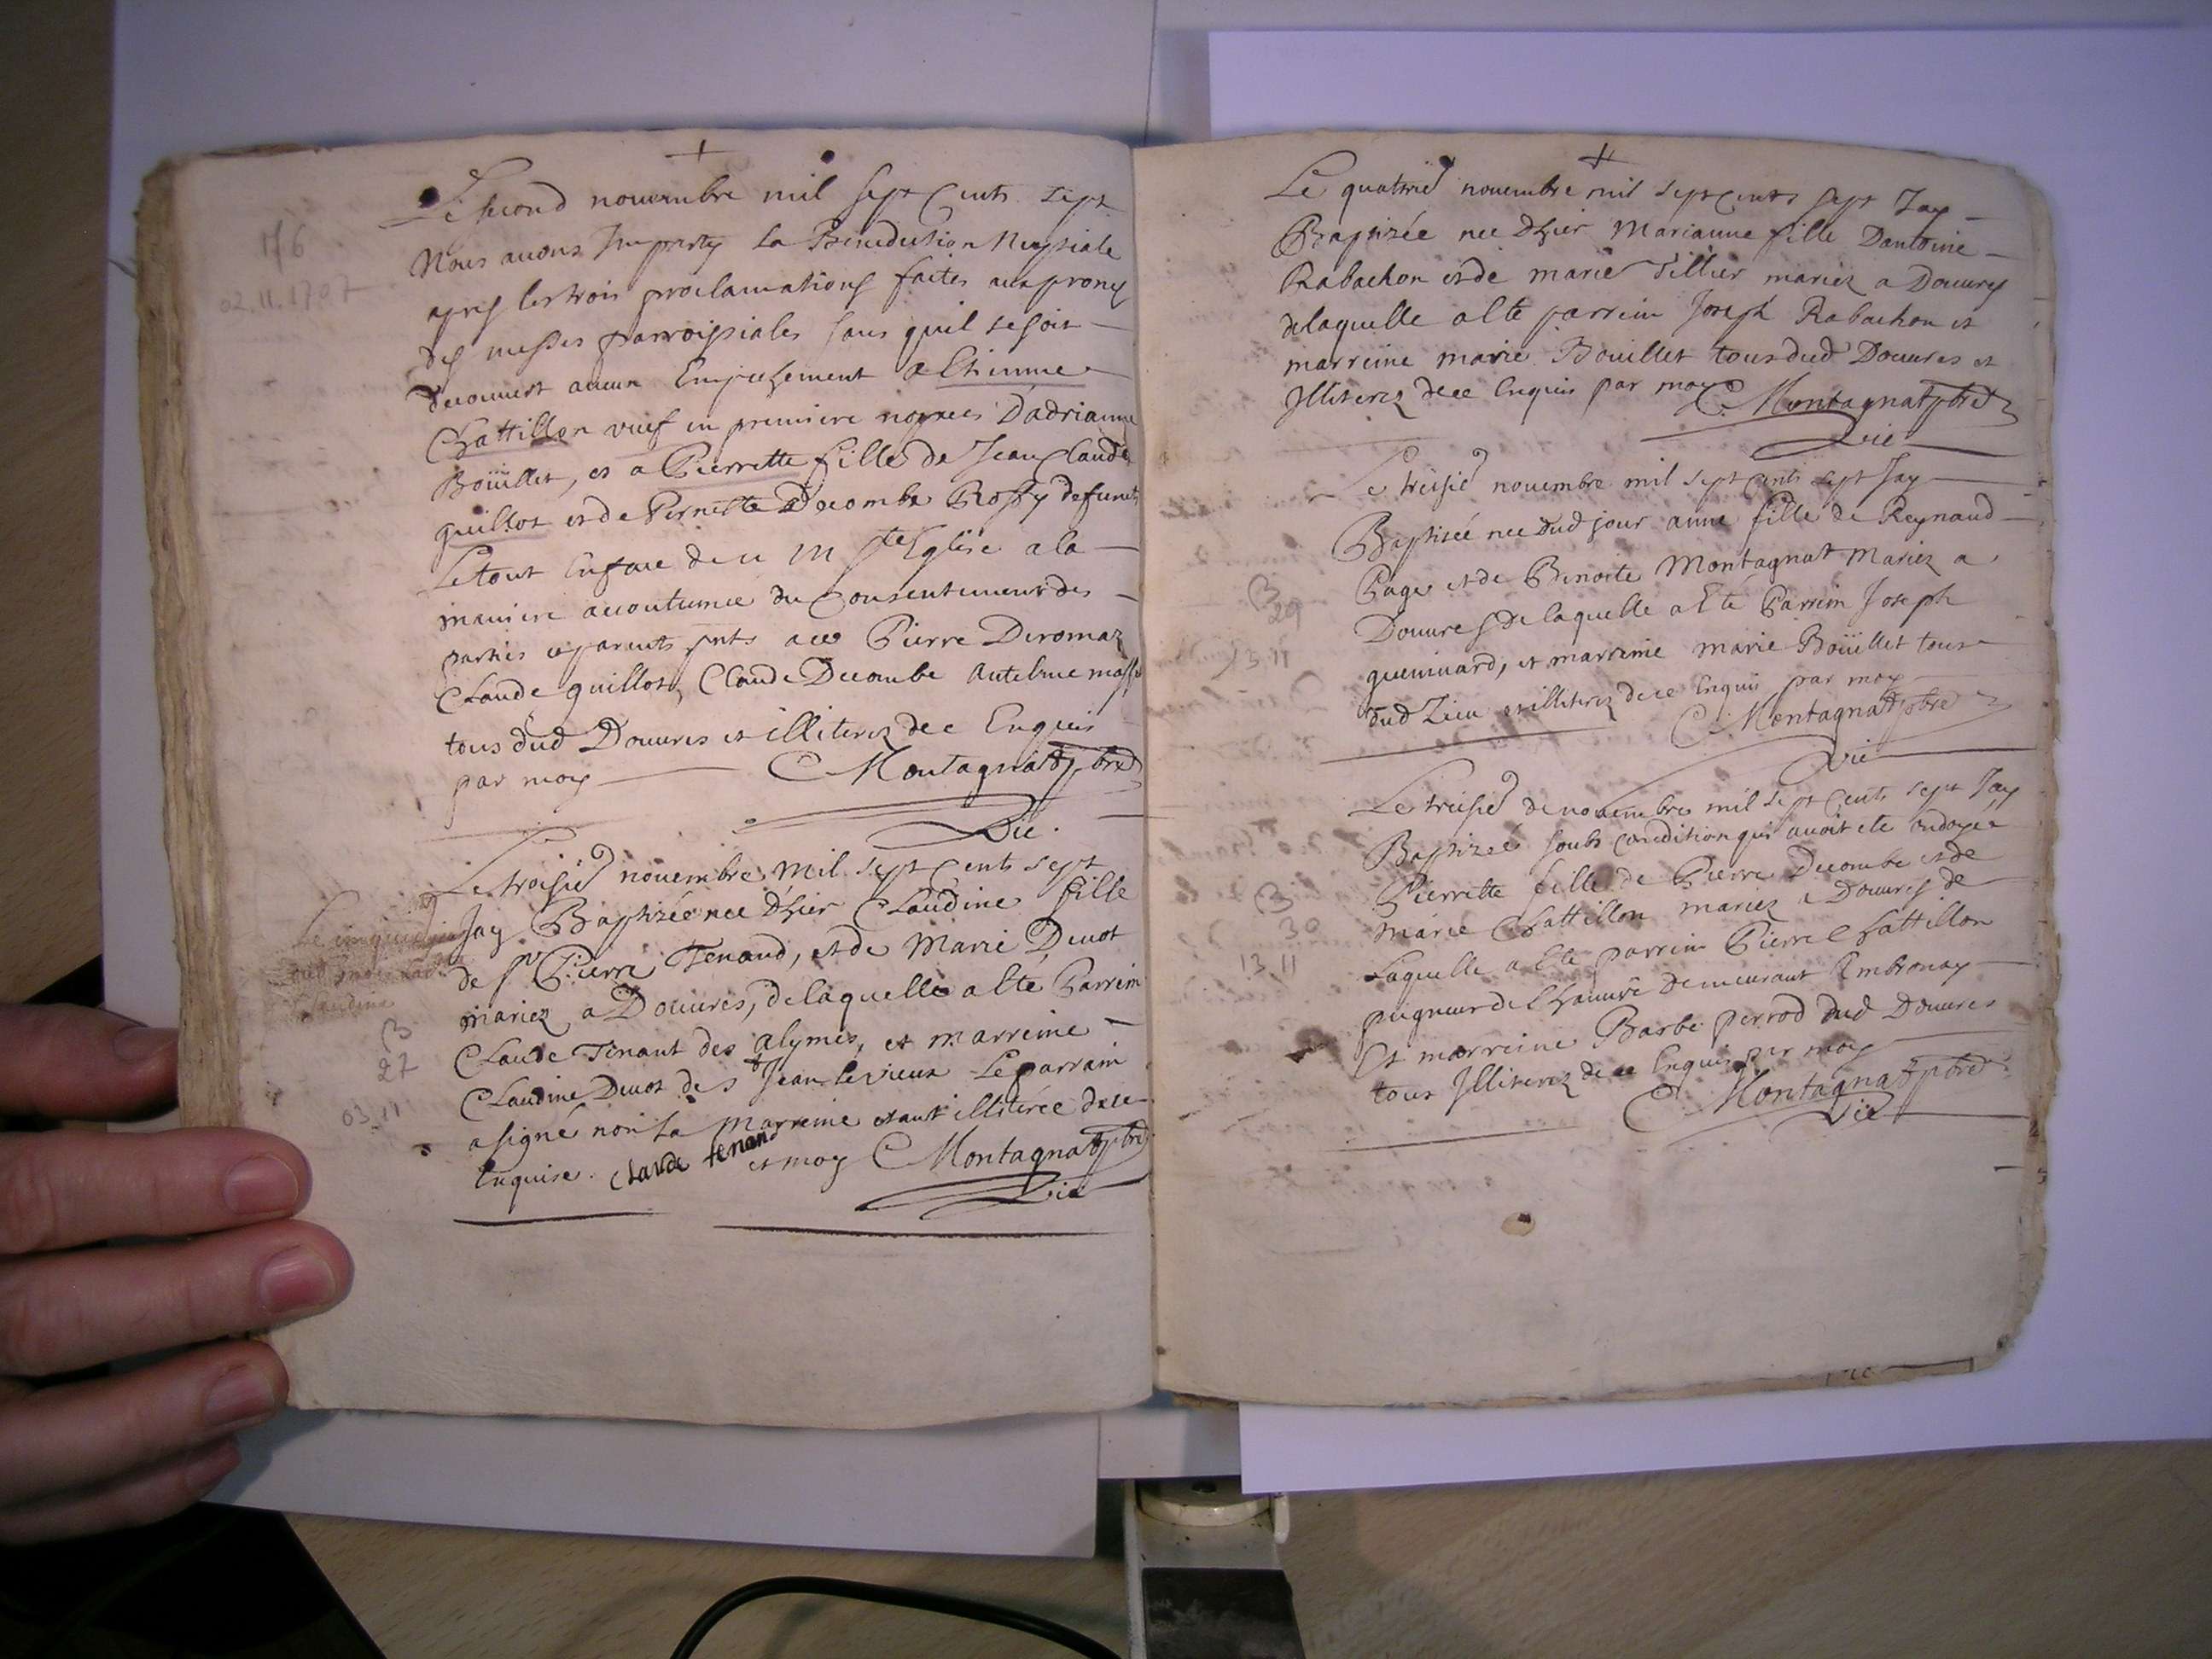 +
Le second nouembre mil sept Cents sept
Nous auons Imparty la Benediction Nuptiale
apres les trois proclamations faites aux prones
des messes parroissiales sans quil se soit
decouuert aucun Empechement a Ethienne
Chattillon veuf en premiere nopces Dadrianne
Boüillet, et a Pierrette fille de Jean Claude
guillot et de Pernette Decombe Rossy defunts
Le tout En face de n m ste Eglise a la
maniere accoutumee du Consentement des
parties et parents pnts auec Pierre Deromaz
Claude guillot, Claude Decombe Antelme
tous dud Douures et illiterez de ce Enquis
par moy Montagnat ptre
Vic
176
02.11.1707
Le troisie nouembre mil sept Cents sept
Jay Baptizée nee dhier Claudine fille
de sr Pierre Tenand, et de Marie Deuot
mariez a Douures, de laquelle a ete Parrein
Claude Tenant des alymes, et marreine
Claudine Deuot de st Jean le vieux Le parrain
a signé non La marreine etant illiterée de ce
Enquise. claude tenand et moy Montagnat ptre
Vic
Claudine
B
27
03.11
+
Le quatrie nouembre mil sept cents sept Jay
Baptizée nee dhier Marianne fille Dantoine
Rabachon et de marie Tillier mariez a Douures
de laquelle a ete parrein Joseph Rabachon et
marreine marie Bouillet tous dud Douures et
Illiterez de ce Enquis par moy Montagnat ptre
Vic
Le treisie nouembre mil sept cents sept Jay
Baptizée nee dud jour anne fille de Reynaud
Page et de Benoite Montagnat Mariez a
Douures de laquelle a ete Parrein Joseph
et marreine marie Boüillet tous
dud Lieu et illiterez de ce Enquis par moy
Montagnat ptre
Vic
B
29
13.11
Le treisie de nouembre mil sept Cents sept Jay
Baptizée soubs condition qui auoit ete ondoyée
Pierrette fille de Pierre Decombe et de
marie Chattillon mariez a Douures de
Laquelle a ete parrein Pierre Chattillon
peigneur de Chanure demeurant Ambronay
Et marreine Barbe perrod dud Douures
tous Illiterez de ce Enquis par moy
Montagnat ptre
Vic
B
30
13.11